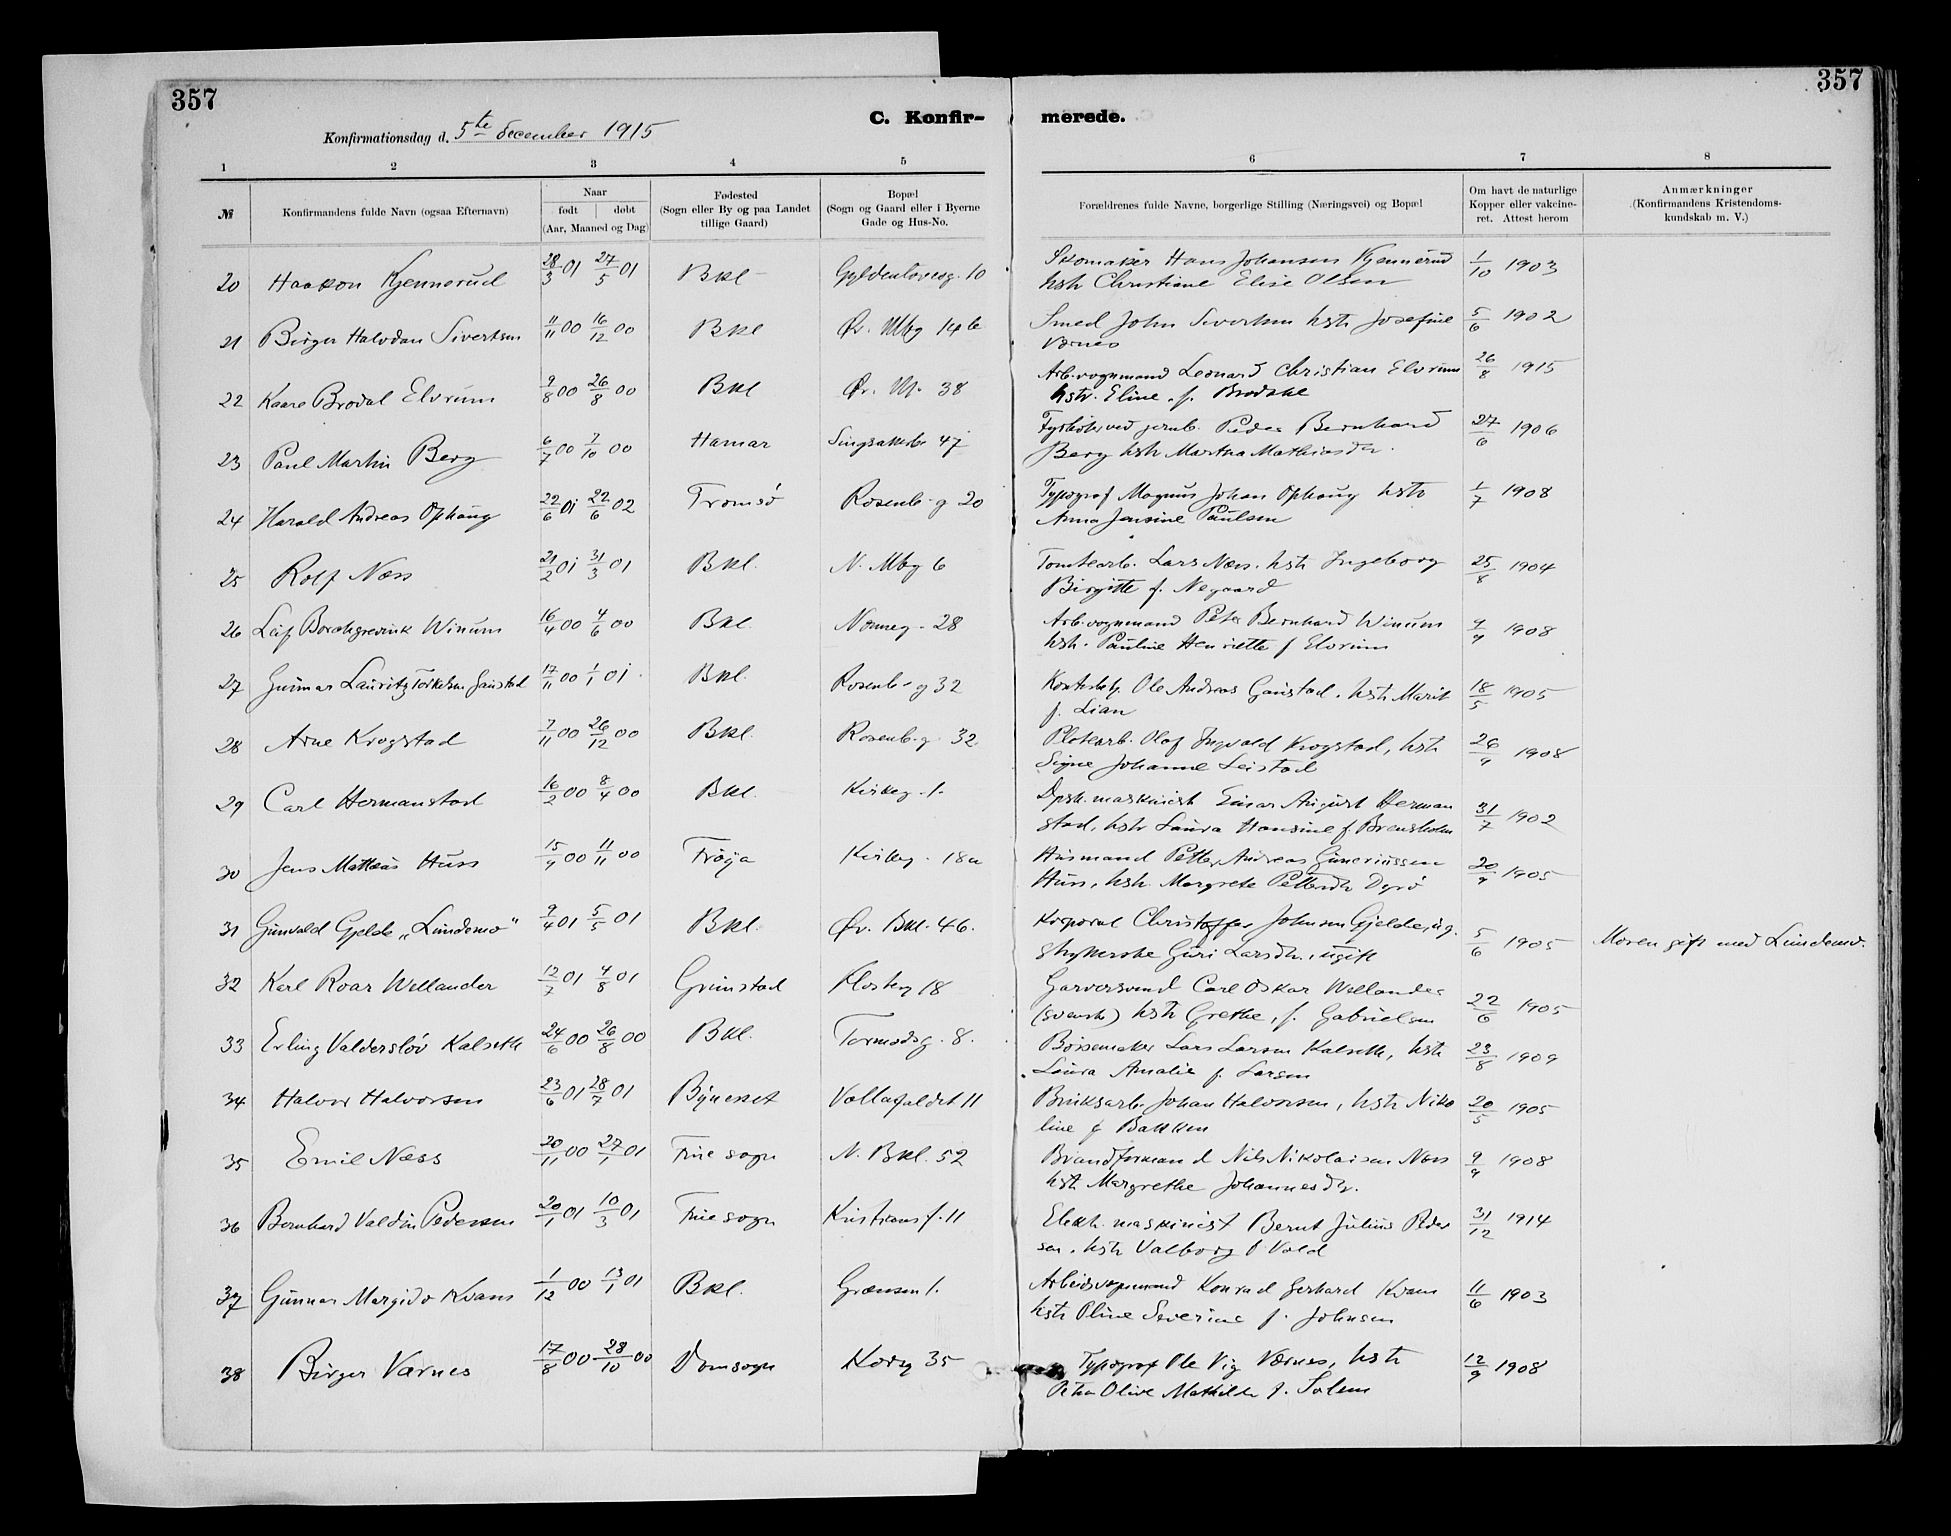 357
357
C. Konfir-
merede.
Konfirmationsdag d. 5te December 1915
1 2 3 4 5 6 7 8
№ Konfirmandens fulde Navn (ogsaa Efternavn)
Naar
født døbt
(Aar, Maaned og Dag)
Fødested
(Sogn eller By og paa Landet
tillige Gaard)
Bopæl
(Sogn og Gaard eller i Byerne
Gade og Hus-No.
Forældrenes fulde Navne, borgerlige Stilling (Næringsvei) og Bopæl
Om havt de naturlige
Kopper eller vakcine-
ret. Attest herom
Anmærkninger
(Konfirmandens Kristendoms-
kundskab m. V.)
20 Haakon Kjennerud 28/3 01 27/5 01 Bkl Gyldenløvesg. 10 Skomaker Hans Johansen Kjennerud 1/10 1903
hstr Christiane Elise Olsen
21 Birger Halvdan Sivertsen 11/11 00 16/12 00 Bkl Øv. Mbg 14b Smed John Sivertsen hstr Josefine 5/6 1902
Værnes
22 Kaare Brodal Elvrum 9/8 00 26/8 00 Bkl Øv. 38 Arb.vognmand Leonard Christian Elvrum 26/8 1915
hstr. Eline f.
23 Paul Martin Berg 6/7 00 7/10 00 Hamar 47 Fyrbøter ved jernb. Peder Bernhard 27/6 1906
Berg hstr Martha Mathiasdr.
24 Harald Andreas Ophaug 22/6 01 22/6 02 Tromsø Rosenb-g 20 Typograf Magnus Johan Ophaug hstr 1/7 1908
Anna Jensine Paulsen
25 Rolf Næss 21/2 01 31/3 01 Bkl. N. Mbg 6 Tomtearb. Lars Næss. hstr Ingeborg 25/8 1904
Birgitte f. Negaard
26 Leif Borchgrevink Winum 16/4 00 4/6 00 Bkl. Nonneg. 28 Arb.vognmand Peter Bernhard Winum 1908
hstr. Pauline Henriette f Elvrum
27 Gunnar Lauritz Gaustad 17/11 00 1/1 01 Bkl. Rosenb-g 32 Ole Andreas Gaustad. hstr Marit 18/5 1905
f. Lian
28 Arne Krogstad 7/11 00 26/12 00 Bkl. Rosenb.g. 32 Olaf Ingvald Krogstad, hstr 1908
Signe Johanne Leistad
29 Carl Hermanstad 16/2 00 8/4 00 Bkl. Kirkeg. 1. Dpsk.maskinist Einar August Herman 31/7 1902
stad, hstr Laura Hansine f
30 Jens Mattæus Huss 00 11/11 00 Frøya Kirkeg. 18a Husmand Petter Andreas Guneriussen 1905
Huss, hstr. Margrete Dyrø
31 Gunvald Gjelde „Lundemo" 9/4 01 5/5 01 Bkl. Øv. Bkl. 46. Korporal Christoffer Johnsen Gjelde, ug. 5/6 1905 Moren gift med Lundemo.
Guri Larsdr., ugift
32 Karl Roar Wellander 12/7 01 4/8 01 Grimstad 18 Garversvend Carl Oskar Wellander 22/6 1905
(svensk) hstr Grethe, f. Gabrielsen
33 Erling Valdersløv Kalseth 24/6 00 26/8 00 Bkl. Tormodsg. 8. Bøssemaker Lars Larsen Kalseth, hstr 23/8 1909
Laura Amalie f. Larsen
34 Halvor Halvorsen 23/6 01 28/7 01 Bynesset Vollafaldet 11 Bruksarb. Johan Halvorsen, hstr Niko 20/5 1905
line f Bakken
35 Emil Næss 20/11 00 27/1 01 Frue sogn N. Bkl. 52 Brandformand Nils Nikolaisen Næss 1908
hstr Margrethe Johannesdr.
36 Bernhard Valdin Pedersen 20/1 01 10/3 01 Frue sogn Kristiansf. 11 Elekt. maskinist Bernt Julius Peder 31/12 1914
sen. hstr Valborg f Vold
37 Gunnar Margido Kvam 1/12 00 13/1 01 Bkl. Grænsen 1. Arbeidsvognmand Konrad Gerhard Kvam 11/6 1903
hstr Oline Severine f. Johnsen
38 Birger Værnes 17/8 00 28/10 00 Domsogn 35 Typograf Ole Vig Værnes, hstr 12/9 1908
Petra Olive Mathilde f. Solem